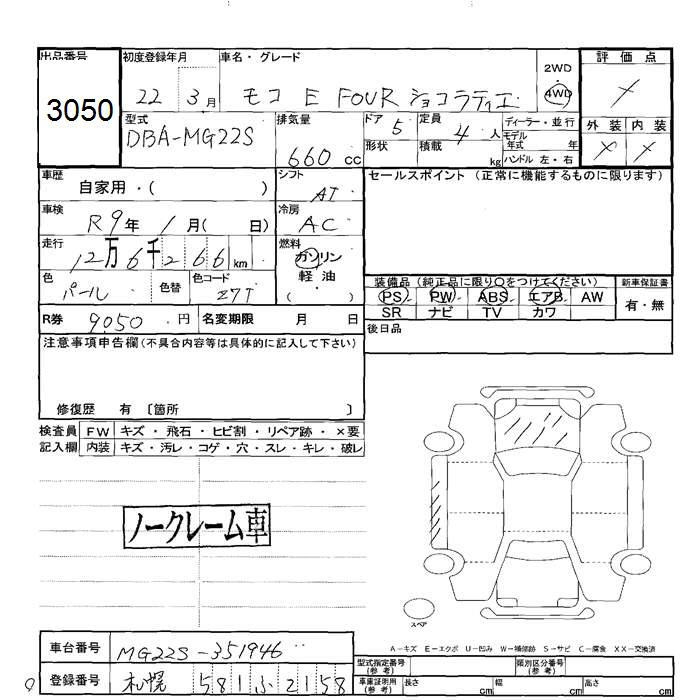 出品番号 初度登録年月 車名・グレード 評価点
3050 22 3月 モコ E FOUR ショコラティエ 2WD 4WD ×
型式 排気量 ドア 定員 ディーラー・並行 外装 内装
DBA-MG22S 660 cc 5 4 人 モデル年式 年 × ×
形状 積載 kg ハンドル 左・右
車歴 シフト セールスポイント (正常に機能するものに限ります)
自家用・( ) AT
車検 冷房
R9年 1月( 日) AC
走行 燃料
12万6千266 km ガソリン
色 色替 色コード 軽・油
パール Z7T ( )
装備品 (純正品に限り○をつけてください) 新車保証書
PS PW ABS エアB AW 有・無
SR ナビ TV カワ
R券 9050 円 名変期限 月 日
後日品
注意事項申告欄(不具合内容等は具体的に記入して下さい)
修復歴 有 〔箇所 〕
検査員 FW キズ・飛石・ヒビ割・リペア跡・×要
記入欄 内装 キズ・汚レ・コゲ・穴・スレ・キレ・破レ
ノークレーム車
スペア
A-キズ E-エクボ U-凹み W-補修跡 S-サビ C-腐食 XX-交換済
車台番号 MG22S-351946
型式指定番号(参考) 類別区分番号(参考)
登録番号 札幌 581 ふ 2158
車庫証明用(参考) 長さ cm 幅 cm 高さ cm